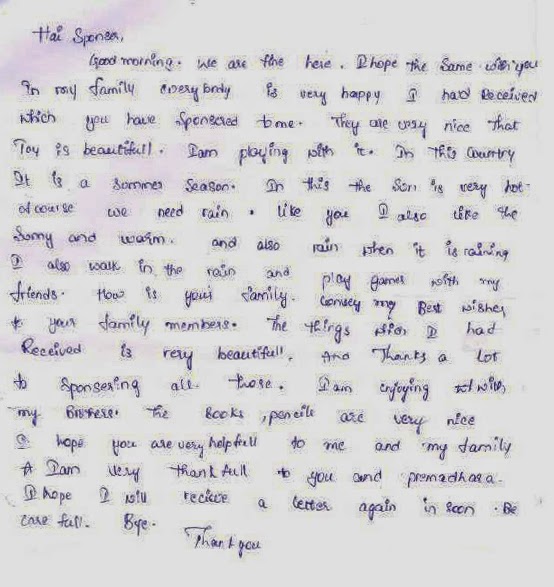 Hai Sponser,
Good morning. We are fine here. I hope the same with you
In my family everybody is very happy I had Received
which you have Sponsered to me. They are very nice that
Toy is beautifull. I am playing with it. In this Country
It is a Sommer Season. In this the Sun is very hot.
of course we need rain. like you I also like the
Sunny and warm. and also rain when it is raining
I also walk in the rain and play games with my
friends. How is your family. Convey my Best wishes
to your family members. The things which I had
Received is very beautifull. And Thanks a lot
to Sponsering all those. I am enjoying it with,
my Brothers. The Books, pencils are very nice
I hope you are very helpfull to me and my family
I am very thankfull to you and premadhasa.
I hope I will recieve a letter again in soon. Be
care full. Bye.
Thank you